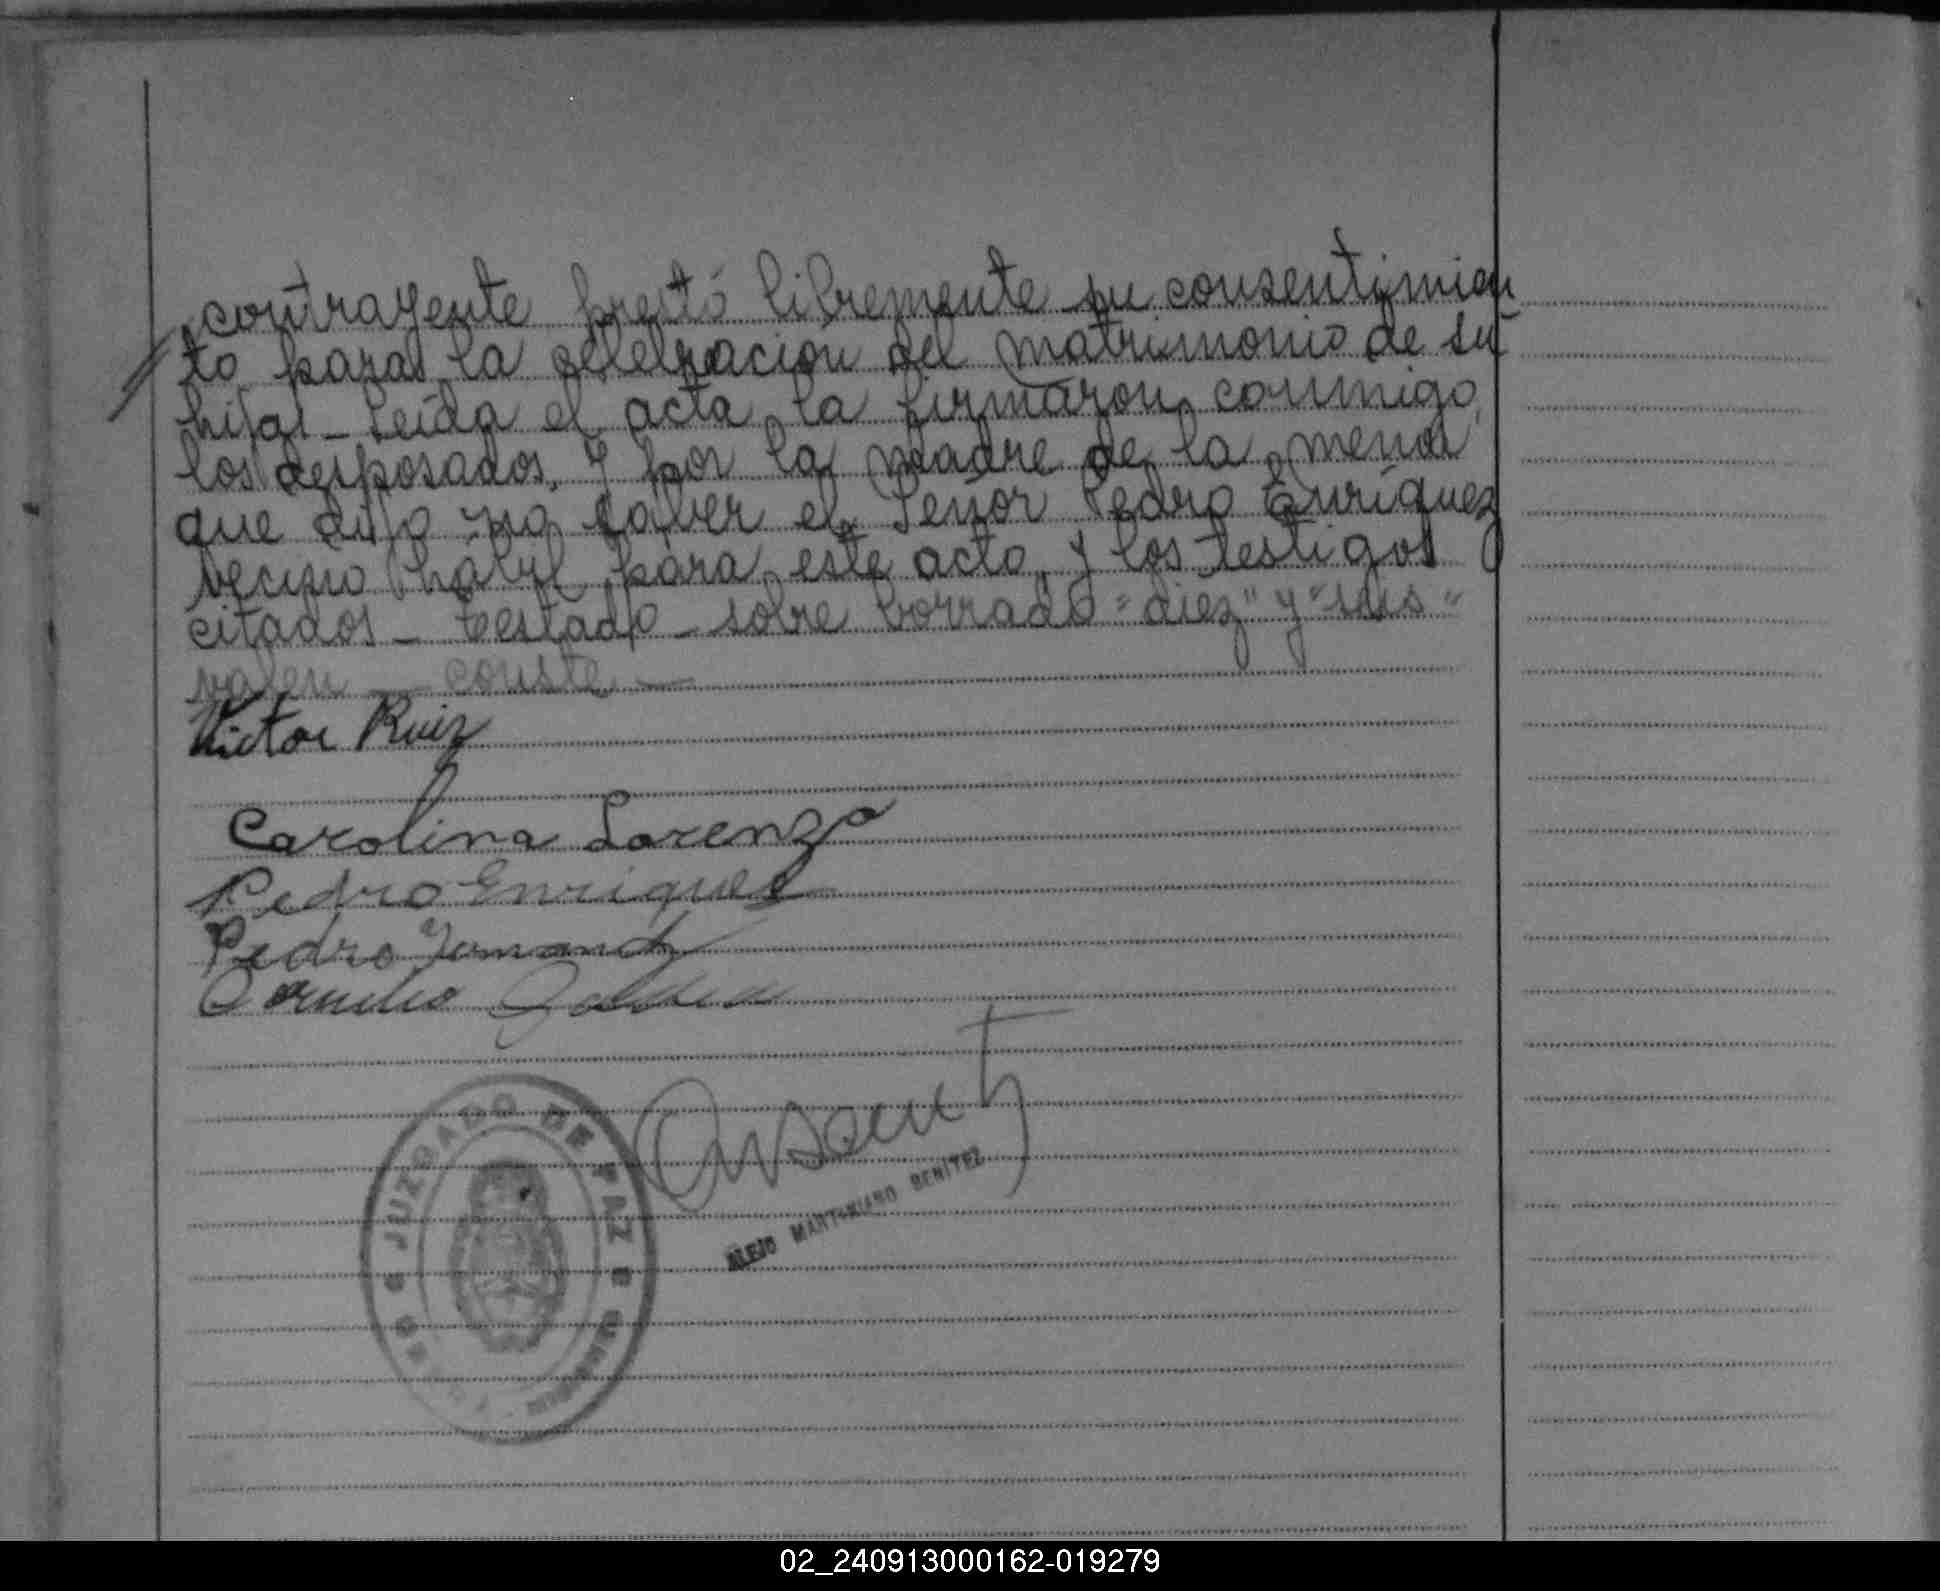 contrayente prestó libremente su consentimien
to para la celebración del matrimonio de su
hija — Leída el acta la firmaron conmigo,
los desposados, y por la madre de la menor
que dijo no saber el Señor Pedro Enríquez
vecino hábil para este acto, y los testigos
citados — Testado — sobre borrado "diez" y "seis"
valen — conste —
Victor Ruiz
Carolina Lorenzo
Pedro Enriquez
Pedro
Cornelio
JUZGADO DE PAZ
ALEJO MARTINIANO BENITEZ
02_240913000162-019279